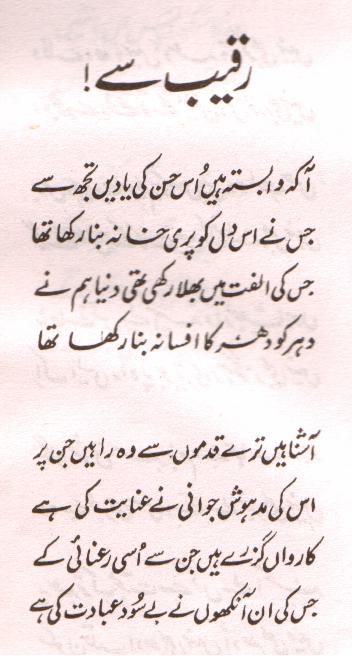 رقیب سے!
آ کہ وابستہ ہیں اُس حسن کی یادیں تجھ سے
جس نے اس دل کو پری خانہ بنا رکھا تھا
جس کی الفت میں بھلا رکھی تھی دنیا ہم نے
دہر کو دہر کا افسانہ بنا رکھا تھا
آشنا ہیں ترے قدموں سے وہ راہیں جن پر
اس کی مدہوش جوانی نے عنایت کی ہے
کارواں گزرے ہیں جن سے اُسی رعنائی کے
جس کی ان آنکھوں نے بے سُود عبادت کی ہے